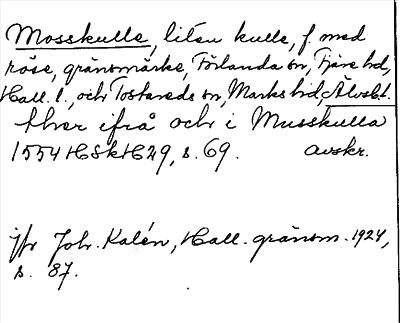 Mosskulle, liten kulle, f. med
röse, gränsmärke, Förlanda sn, Fjäre hd,
Hall. l., och Tostareds sn, Marks hd, Älvsb.l.
ther ifrå och i Musskulla
1554 HSkH29, s. 69. avskr.
jfr Joh. Kalén, Hall. gränsm. 1924,
s. 87.